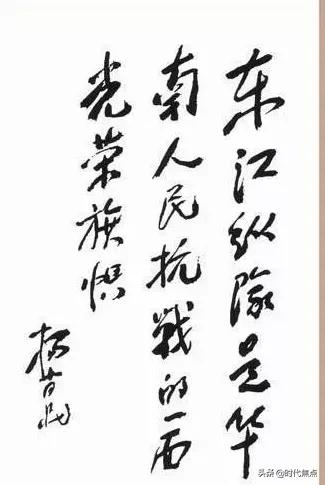 东江纵隊是华
南人民抗戰的一面
光荣旗帜
杨尚昆
头条 @时代焦点